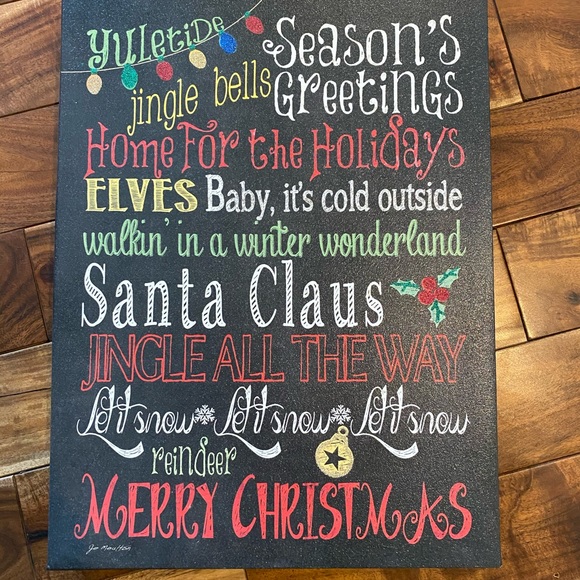 Yuletide
Season's
jingle bells
Greetings
Home For the Holidays
ELVES Baby, it's cold outside
walkin' in a winter wonderland
Santa Claus
JINGLE ALL THE WAY
Let it snow Let it snow Let it snow
reindeer
MERRY CHRISTMAS
Jo Moulton